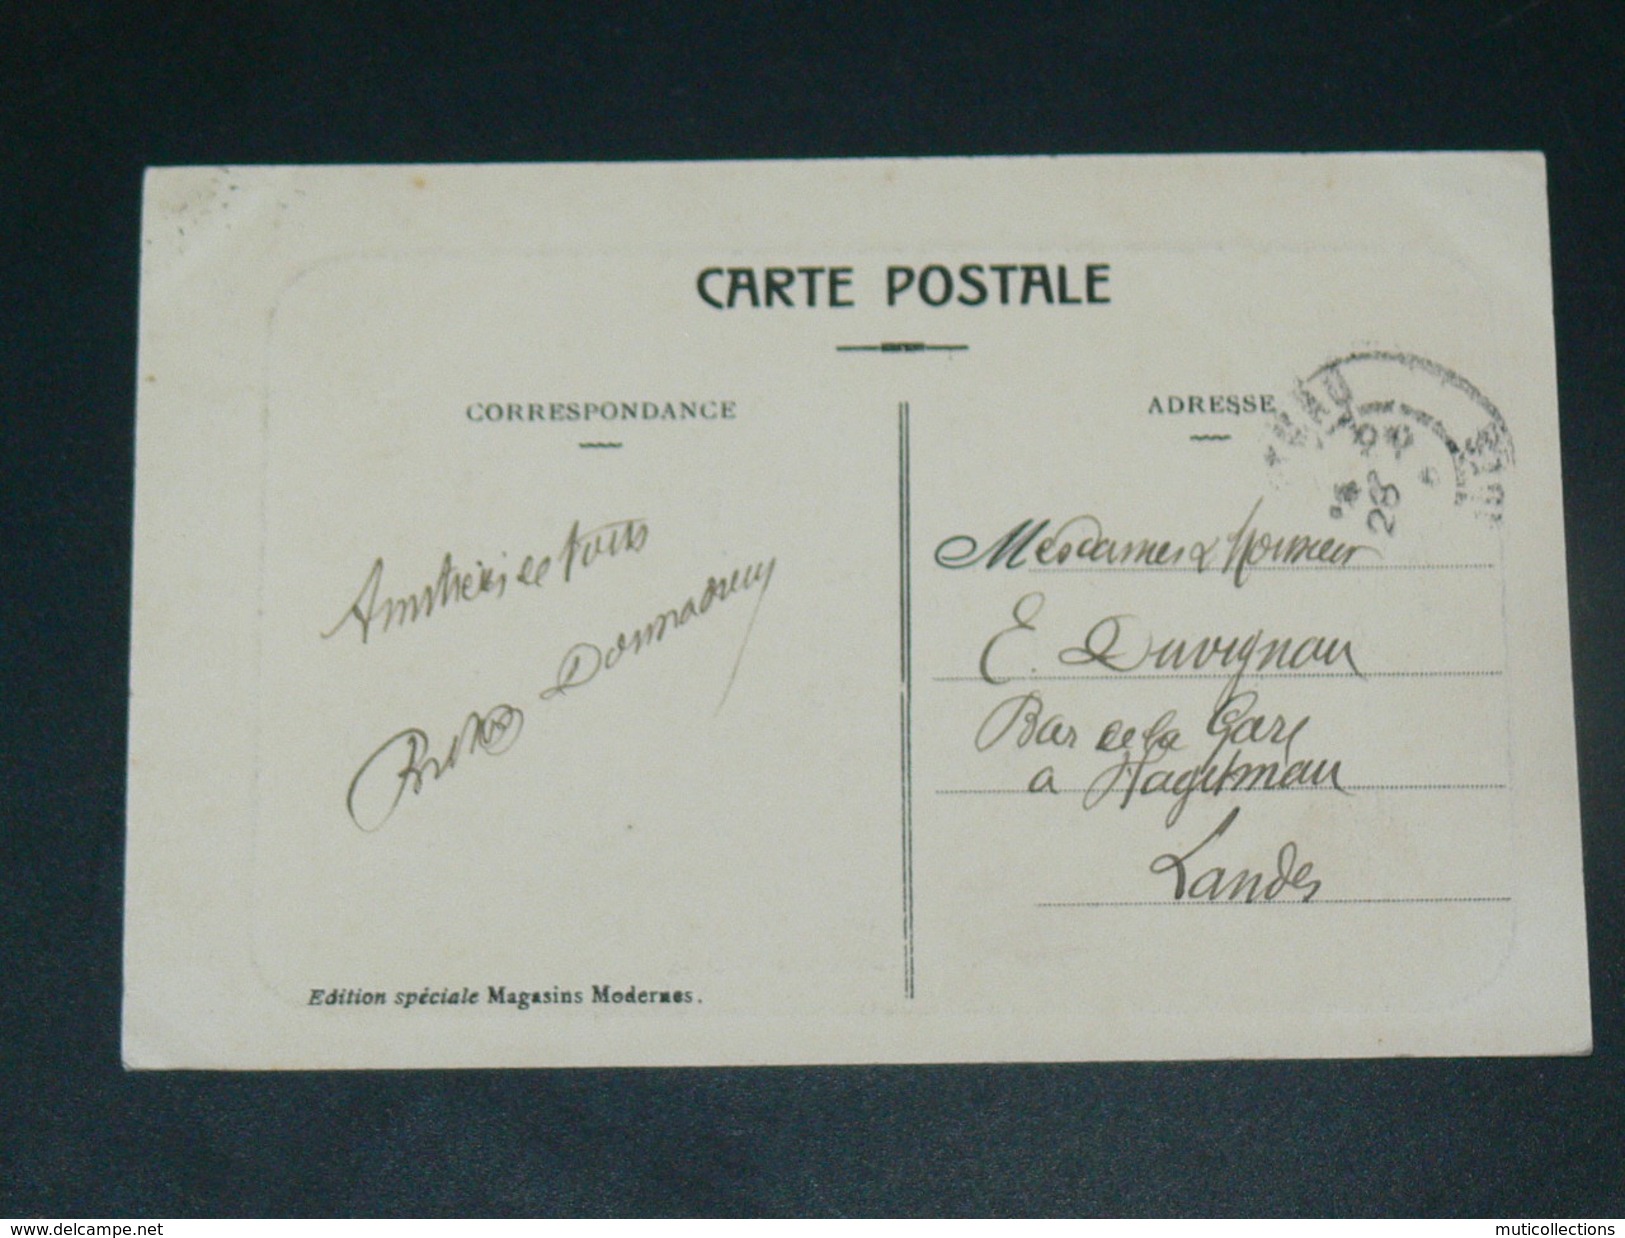 CARTE POSTALE
CORRESPONDANCE
ADRESSE
28
Mesdames & Monsieur
E. Duvignau
Bar de la Gare
a Hagetmau
Landes
Amitiés de tous
Edition spéciale Magasins Modernes.
www.delcampe.net
muticollections